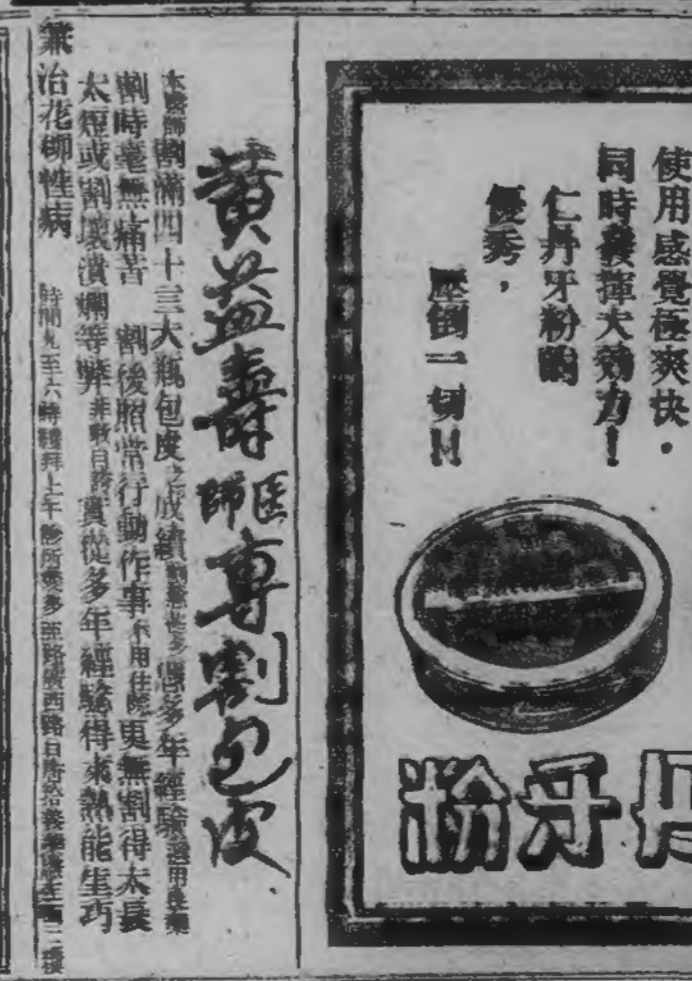 使用感覺極爽快。
同時發揮大効力！
仁丹牙粉的
優秀，
壓倒一切!!
丹牙粉
黃益壽醫師專割包皮
本醫師割滿四十三大瓶包皮之成績 憑多年經驗選用良藥
割時毫無痛苦 割後照常行動作事不用住院更無割得太長
太短或割壞潰爛等弊非敢自誇實從多年經驗得來熟能生巧
兼治花柳性病 時間九至六時禮拜上午 診所愛多亞路廣西路口